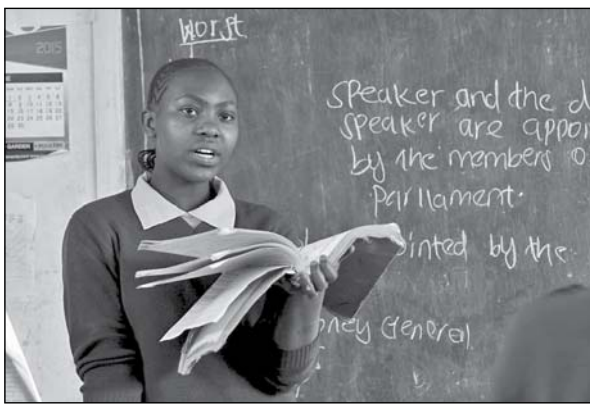 2015
GARDEN
Worst
speaker and the d
speaker are appoi
by the members o
Parliament.
ointed by the
ney General